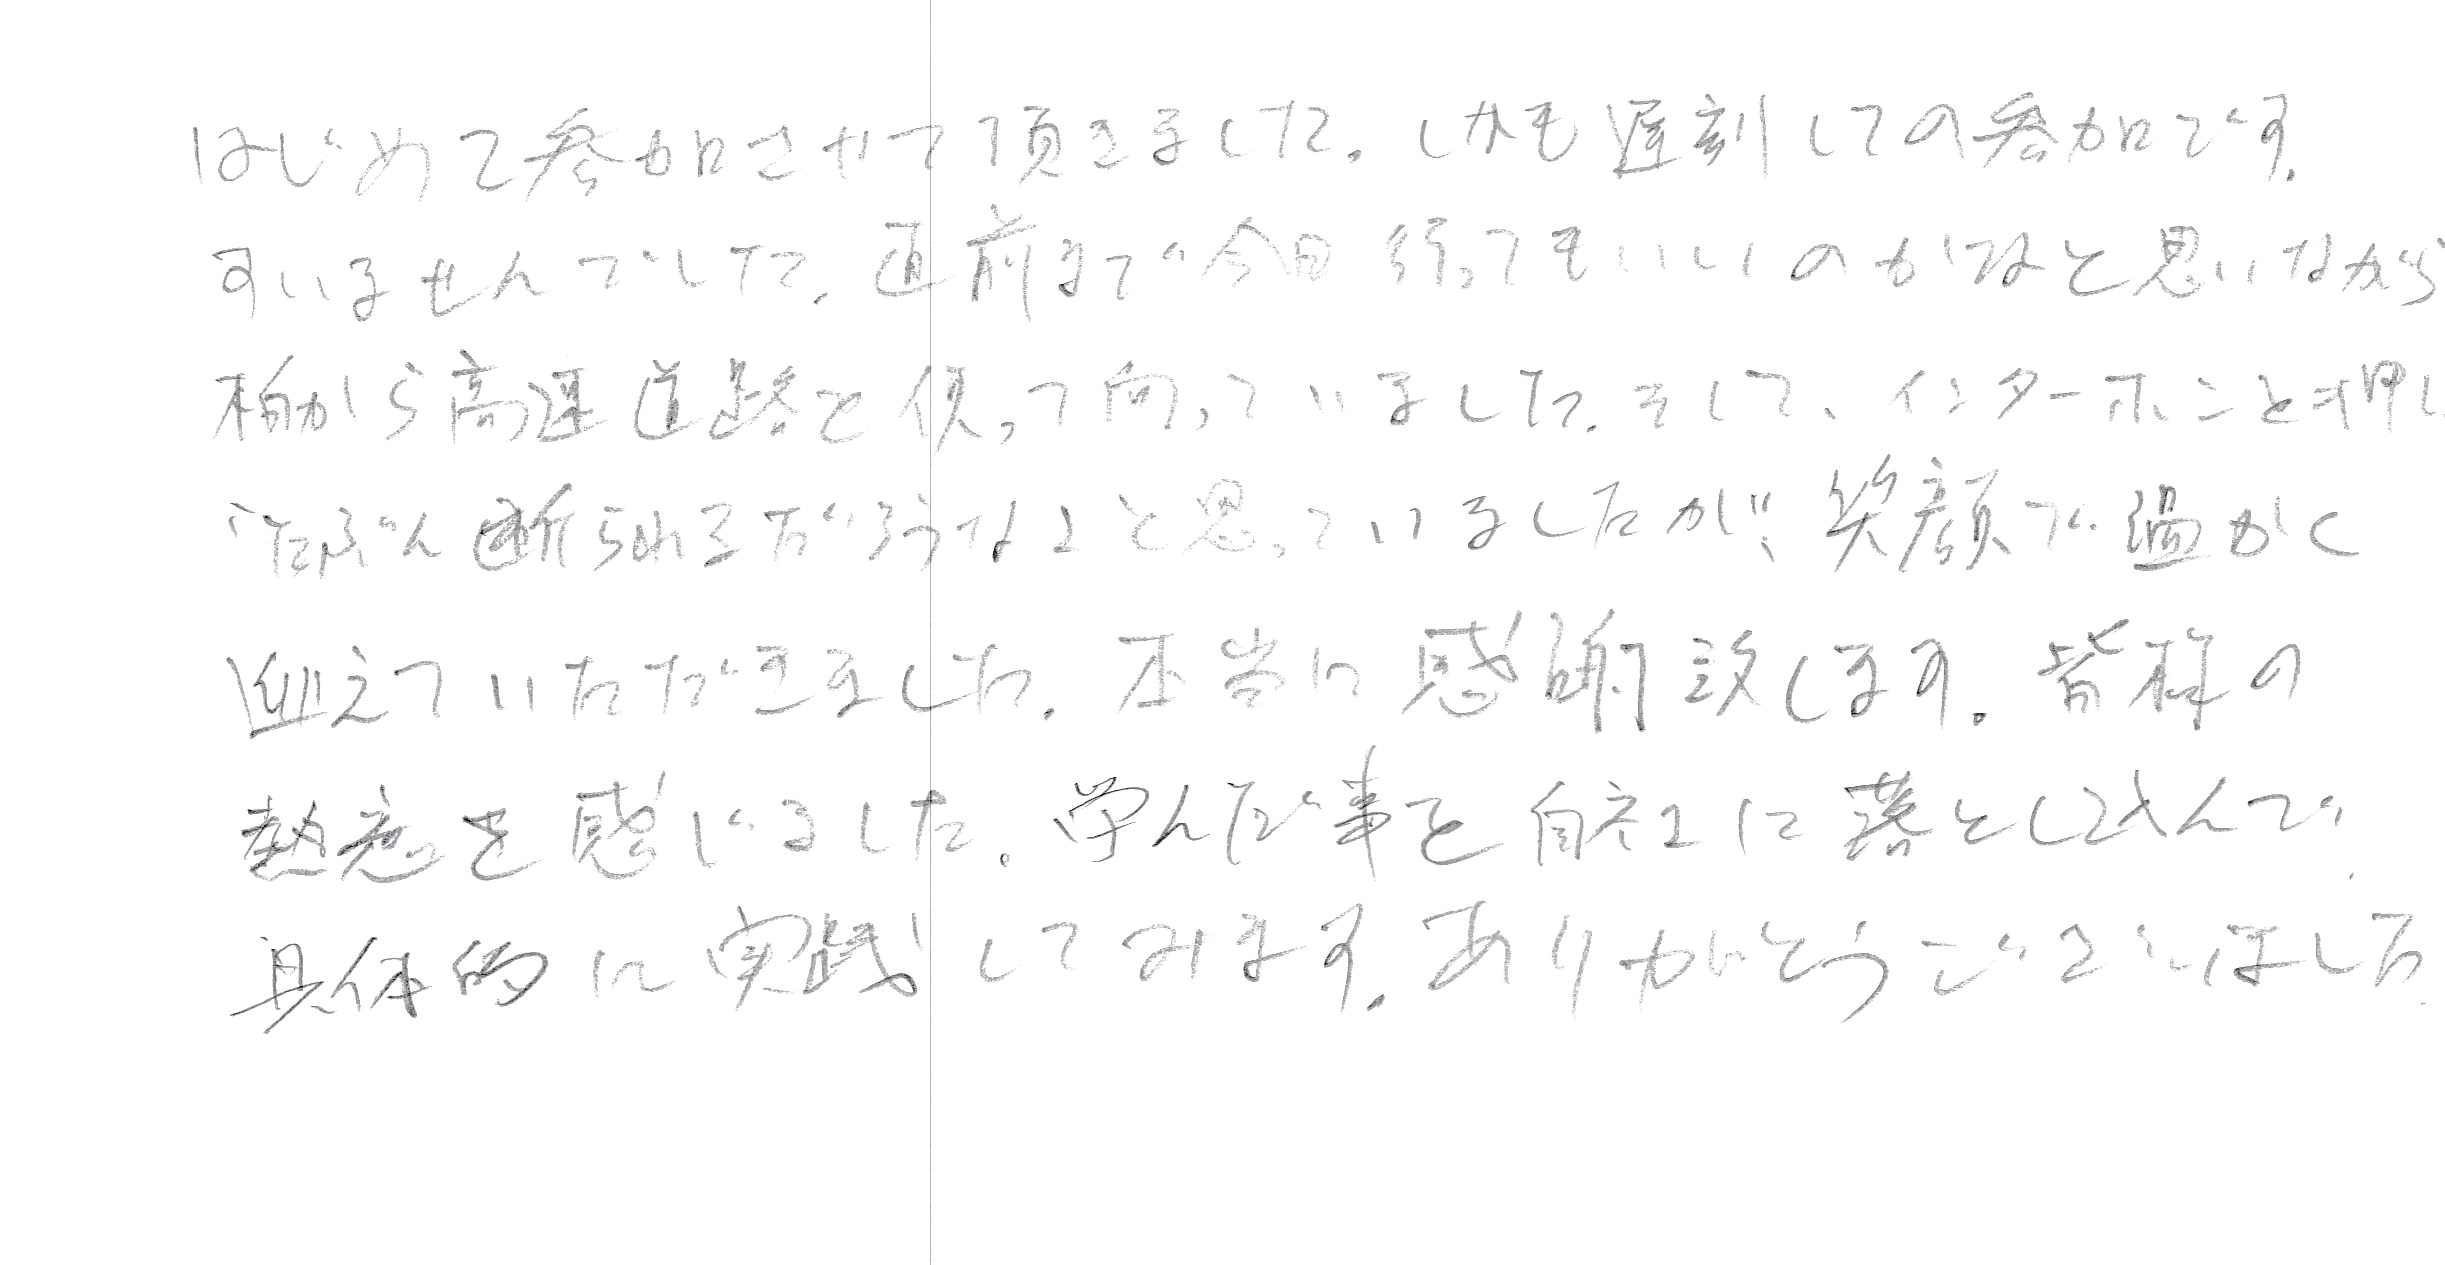 はじめて参加させて頂きました。しかも遅刻しての参加です。
すいませんでした。直前まで今日行ってもいいのかなと思いながら
柏から高速道路を使って向っていました。そして、インターホンを押し
たぶん断られるだろうなと思っていましたが、笑顔で温かく
迎えていただきました。本当に感謝致します。皆様の
熱意を感じました。学んだ事を自社に落とし込んで、
具体的に実践してみます。ありがとうございました。